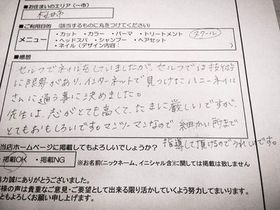 ■お住まいのエリア(〜市)
■ご利用目的(該当するものに丸をつけてください)
メニュー
・カット ・カラー ・パーマ ・トリートメント
・ヘッドスパ ・シャンプー ・ヘアセット
・ネイル(デザイン内容 )
スクール
■感想
セルフでネイルをしていましたが、セルフでは技術的
に限界があり、インターネットで見つけたハニーネイル
さんに通う事に決めました。
先生は、志がとても高くて、たまに厳しいですが、
とてもおもしろいです。マンツーマンなので細かい所まで
指導して頂けるのでうれしいです。
当店ホームページに掲載してもよろしいでしょうか?
掲載OK ・ 掲載NG
※お名前(ニックネーム、イニシャル含)に関しては掲載は致しません
協力誠にありがとうございました。
様の声は貴重なご意見・ご要望として出来る限り活かしていくよう努力してまいります。
とも、よろしくお願い申し上げます。